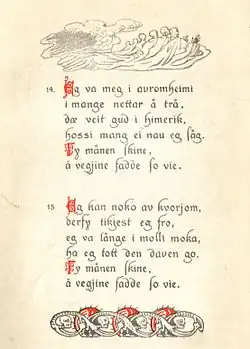 14. Eg va meg i avromheimi
i mange nettar å trå,
dæ veit gud i himerik,
hossi mang ei nau eg såg.
Fy månen skine,
å vegjine fadde so vie.
15 Eg kan noko av kvorjom,
derfy tikjest eg fro,
eg va långe i molli moka,
ha eg tott den dauen go.
Fy månen skine,
å vegjine fadde so vie.